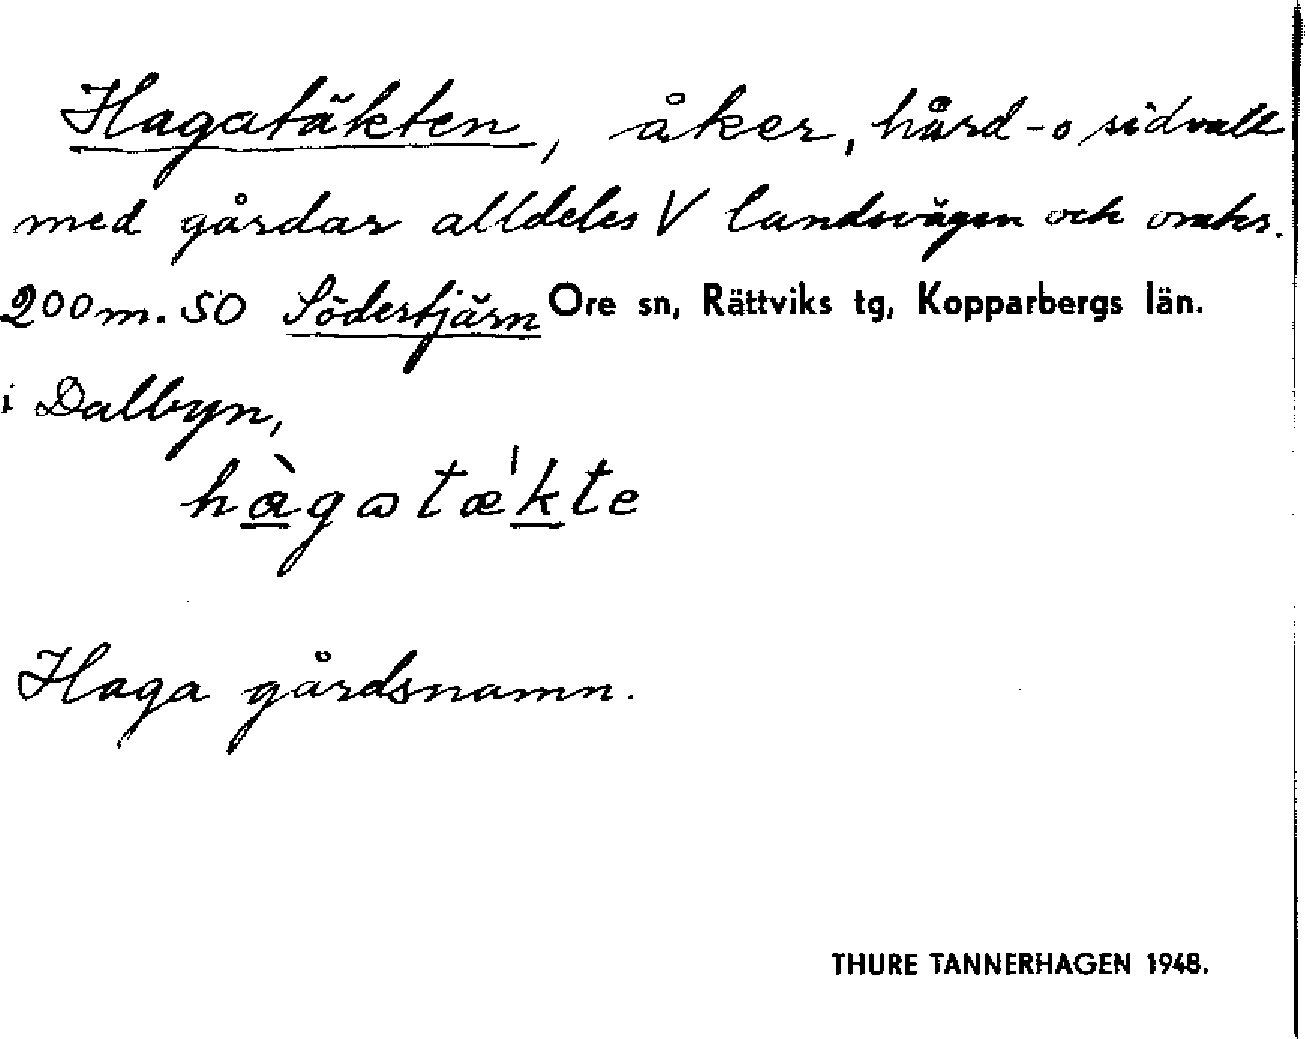 Hagatäkten, åker, hård- o sidvall
med gårdar alldeles V landsvägen och omkr.
200 m. SO Södertjärn Ore sn, Rättviks tg, Kopparbergs län.
i Dalbyn,
hàgatæ'kte
Haga gårdsnamn.
THURE TANNERHAGEN 1948.